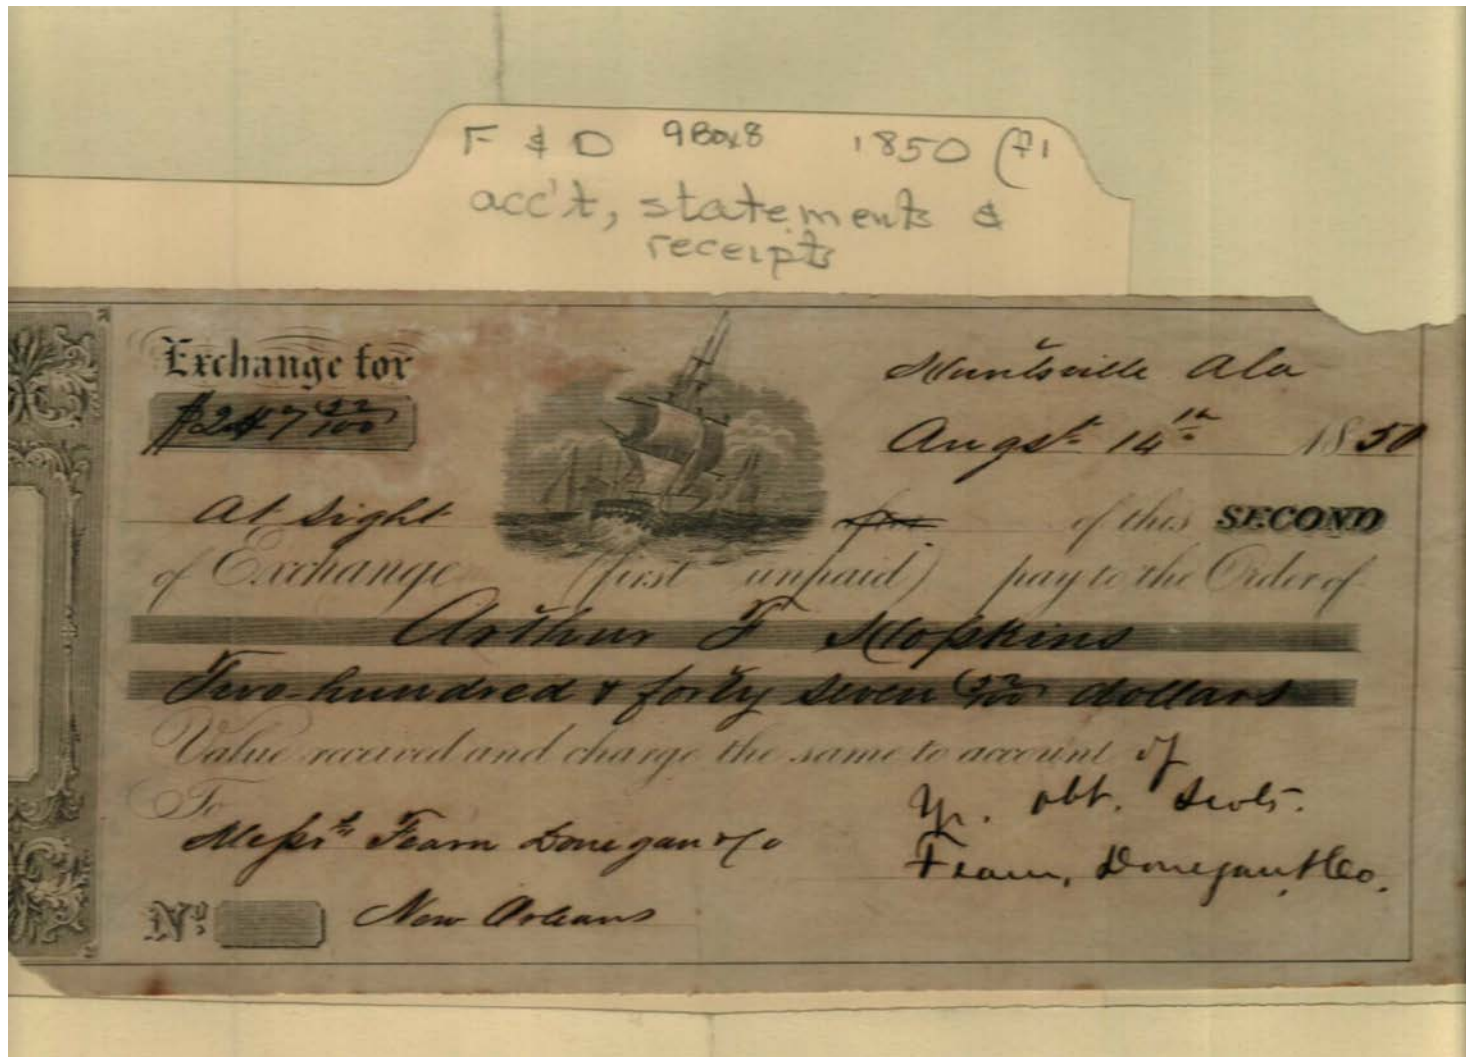 F & D 9 Box 8 1850 (f1
acc't, statements &
receipts
Exchange for
Huntsville Ala
$247 22/100
Augst 14th 1850
At Sight of this SECOND
of Exchange (first unpaid) pay to the Order of
Arthur F Hopkins
Two hundred & forty seven 22/100 dollars
Value received and charge the same to account of
To
Yr. obt. Servts.
Messrs Fearn Donegan & Co
Fearn, Donegan & Co.
No. New Orleans